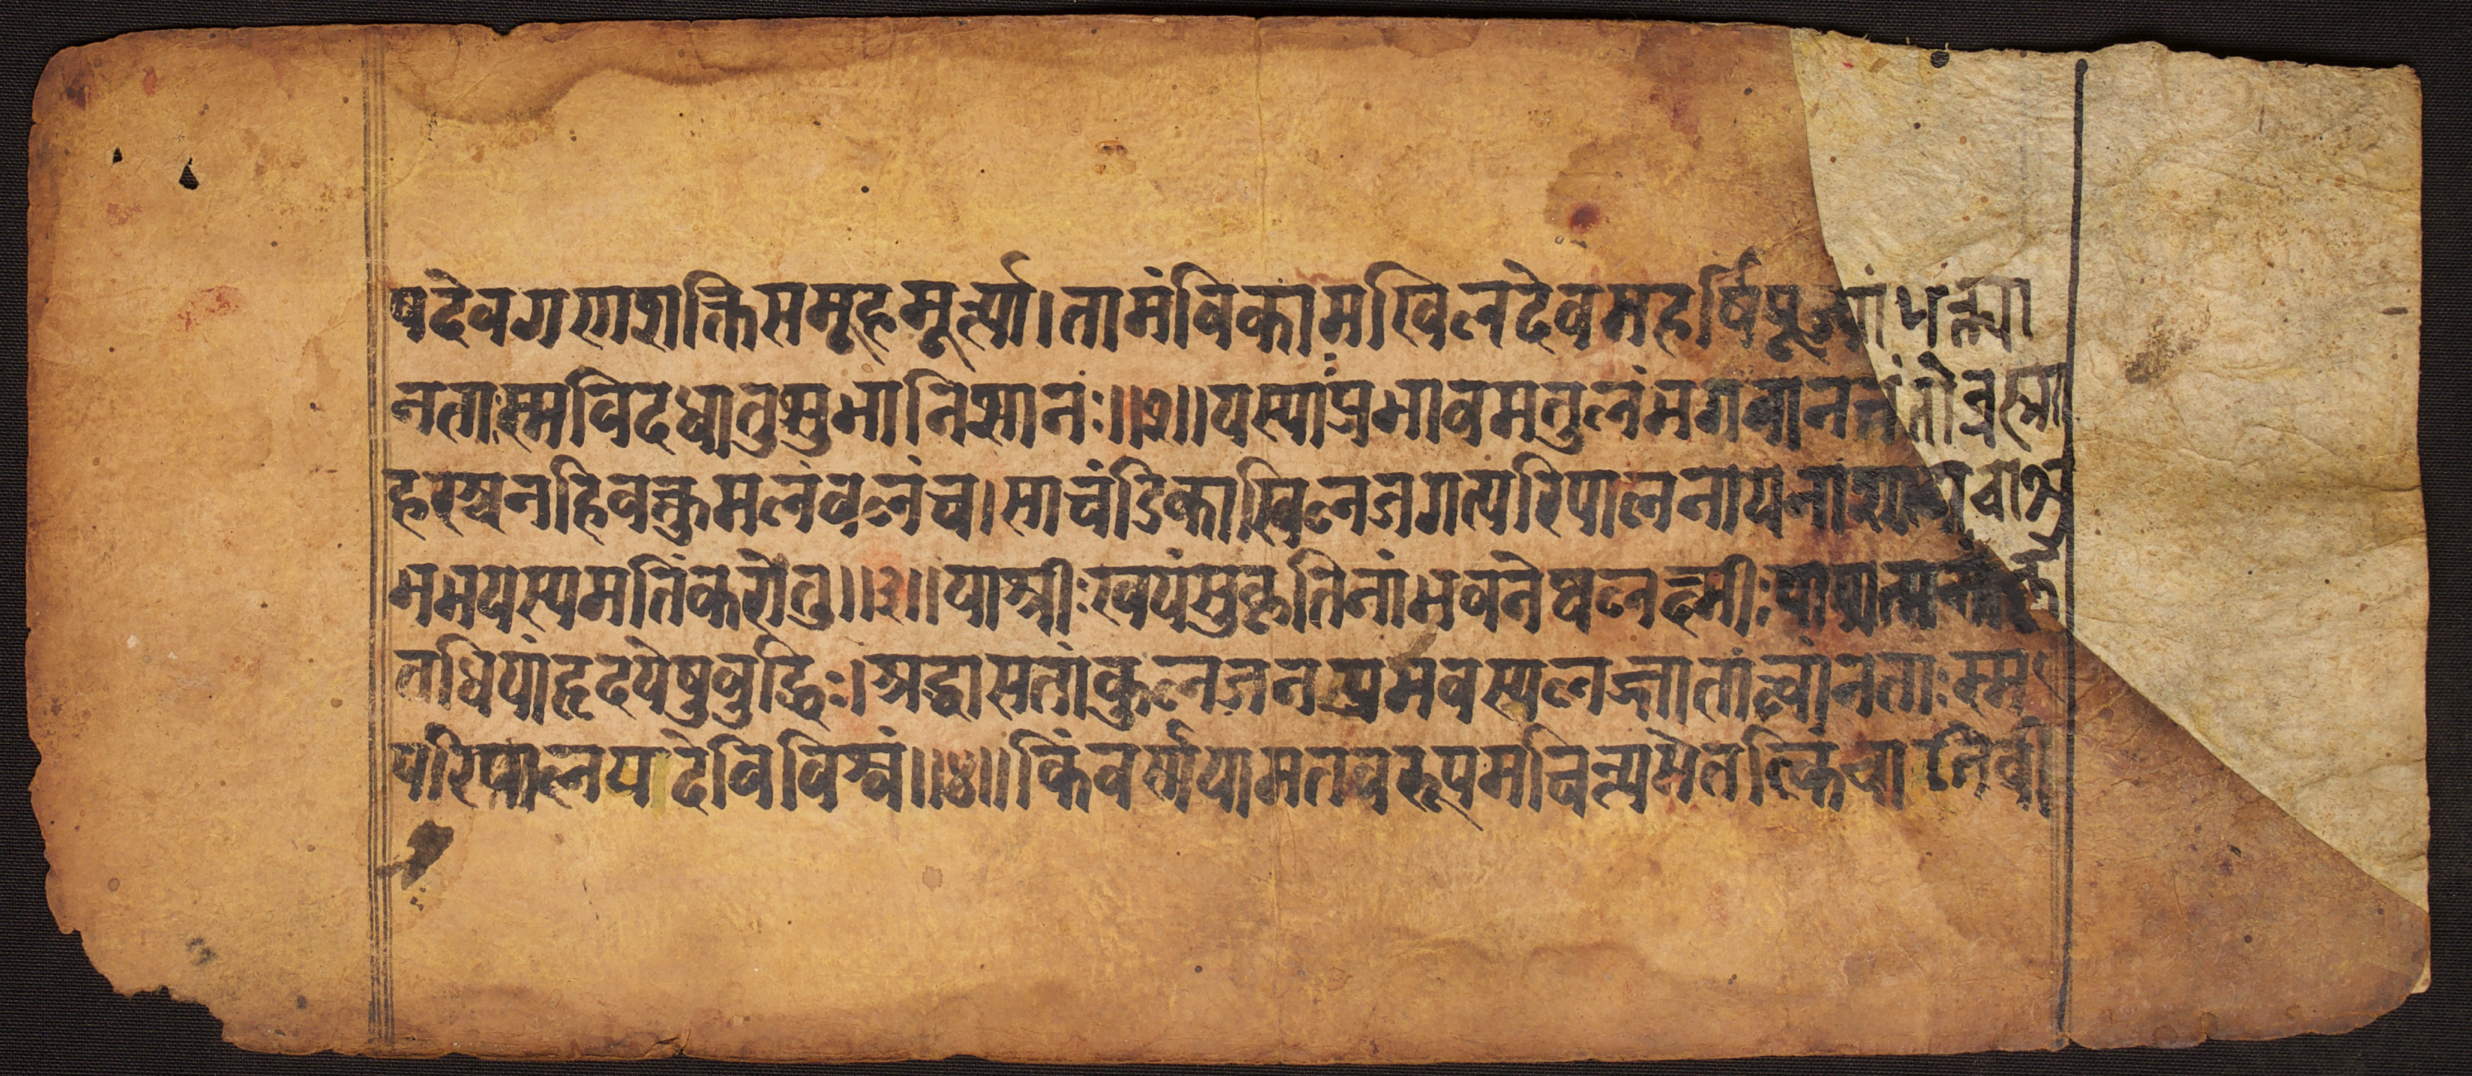 षदेवगणशक्तिसमूहमूर्त्या।तामंविकामखिलदेवमहर्षिपूज्यांभक्त्या
नताःस्मविदधातुशुभानिसानः॥२॥यस्यांप्रभावमतुलंभगवाननंतोव्रह्मा
हरश्चनहिवक्तुमलंवलंच।साचंडिकाखिलजगत्परिपालनायनाशायचाशु
भभयस्यमतिंकरोतु॥३॥याश्रीःस्वयंसुकृतिनांभवनेष्वलक्ष्मीःपापात्मनां
तधियांहृदयेषुवुद्धिः।श्रद्धासतांकुलजनप्रभवस्यलज्जातांत्वांनताःस्म
परिपालयदेविविश्वं॥४॥किंवर्णयामतवरूपमचिन्त्यमेतत्किंचातिवी